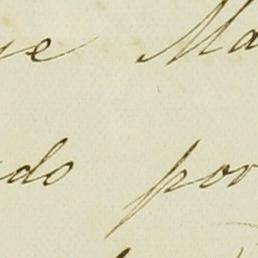 ue Ma
do por